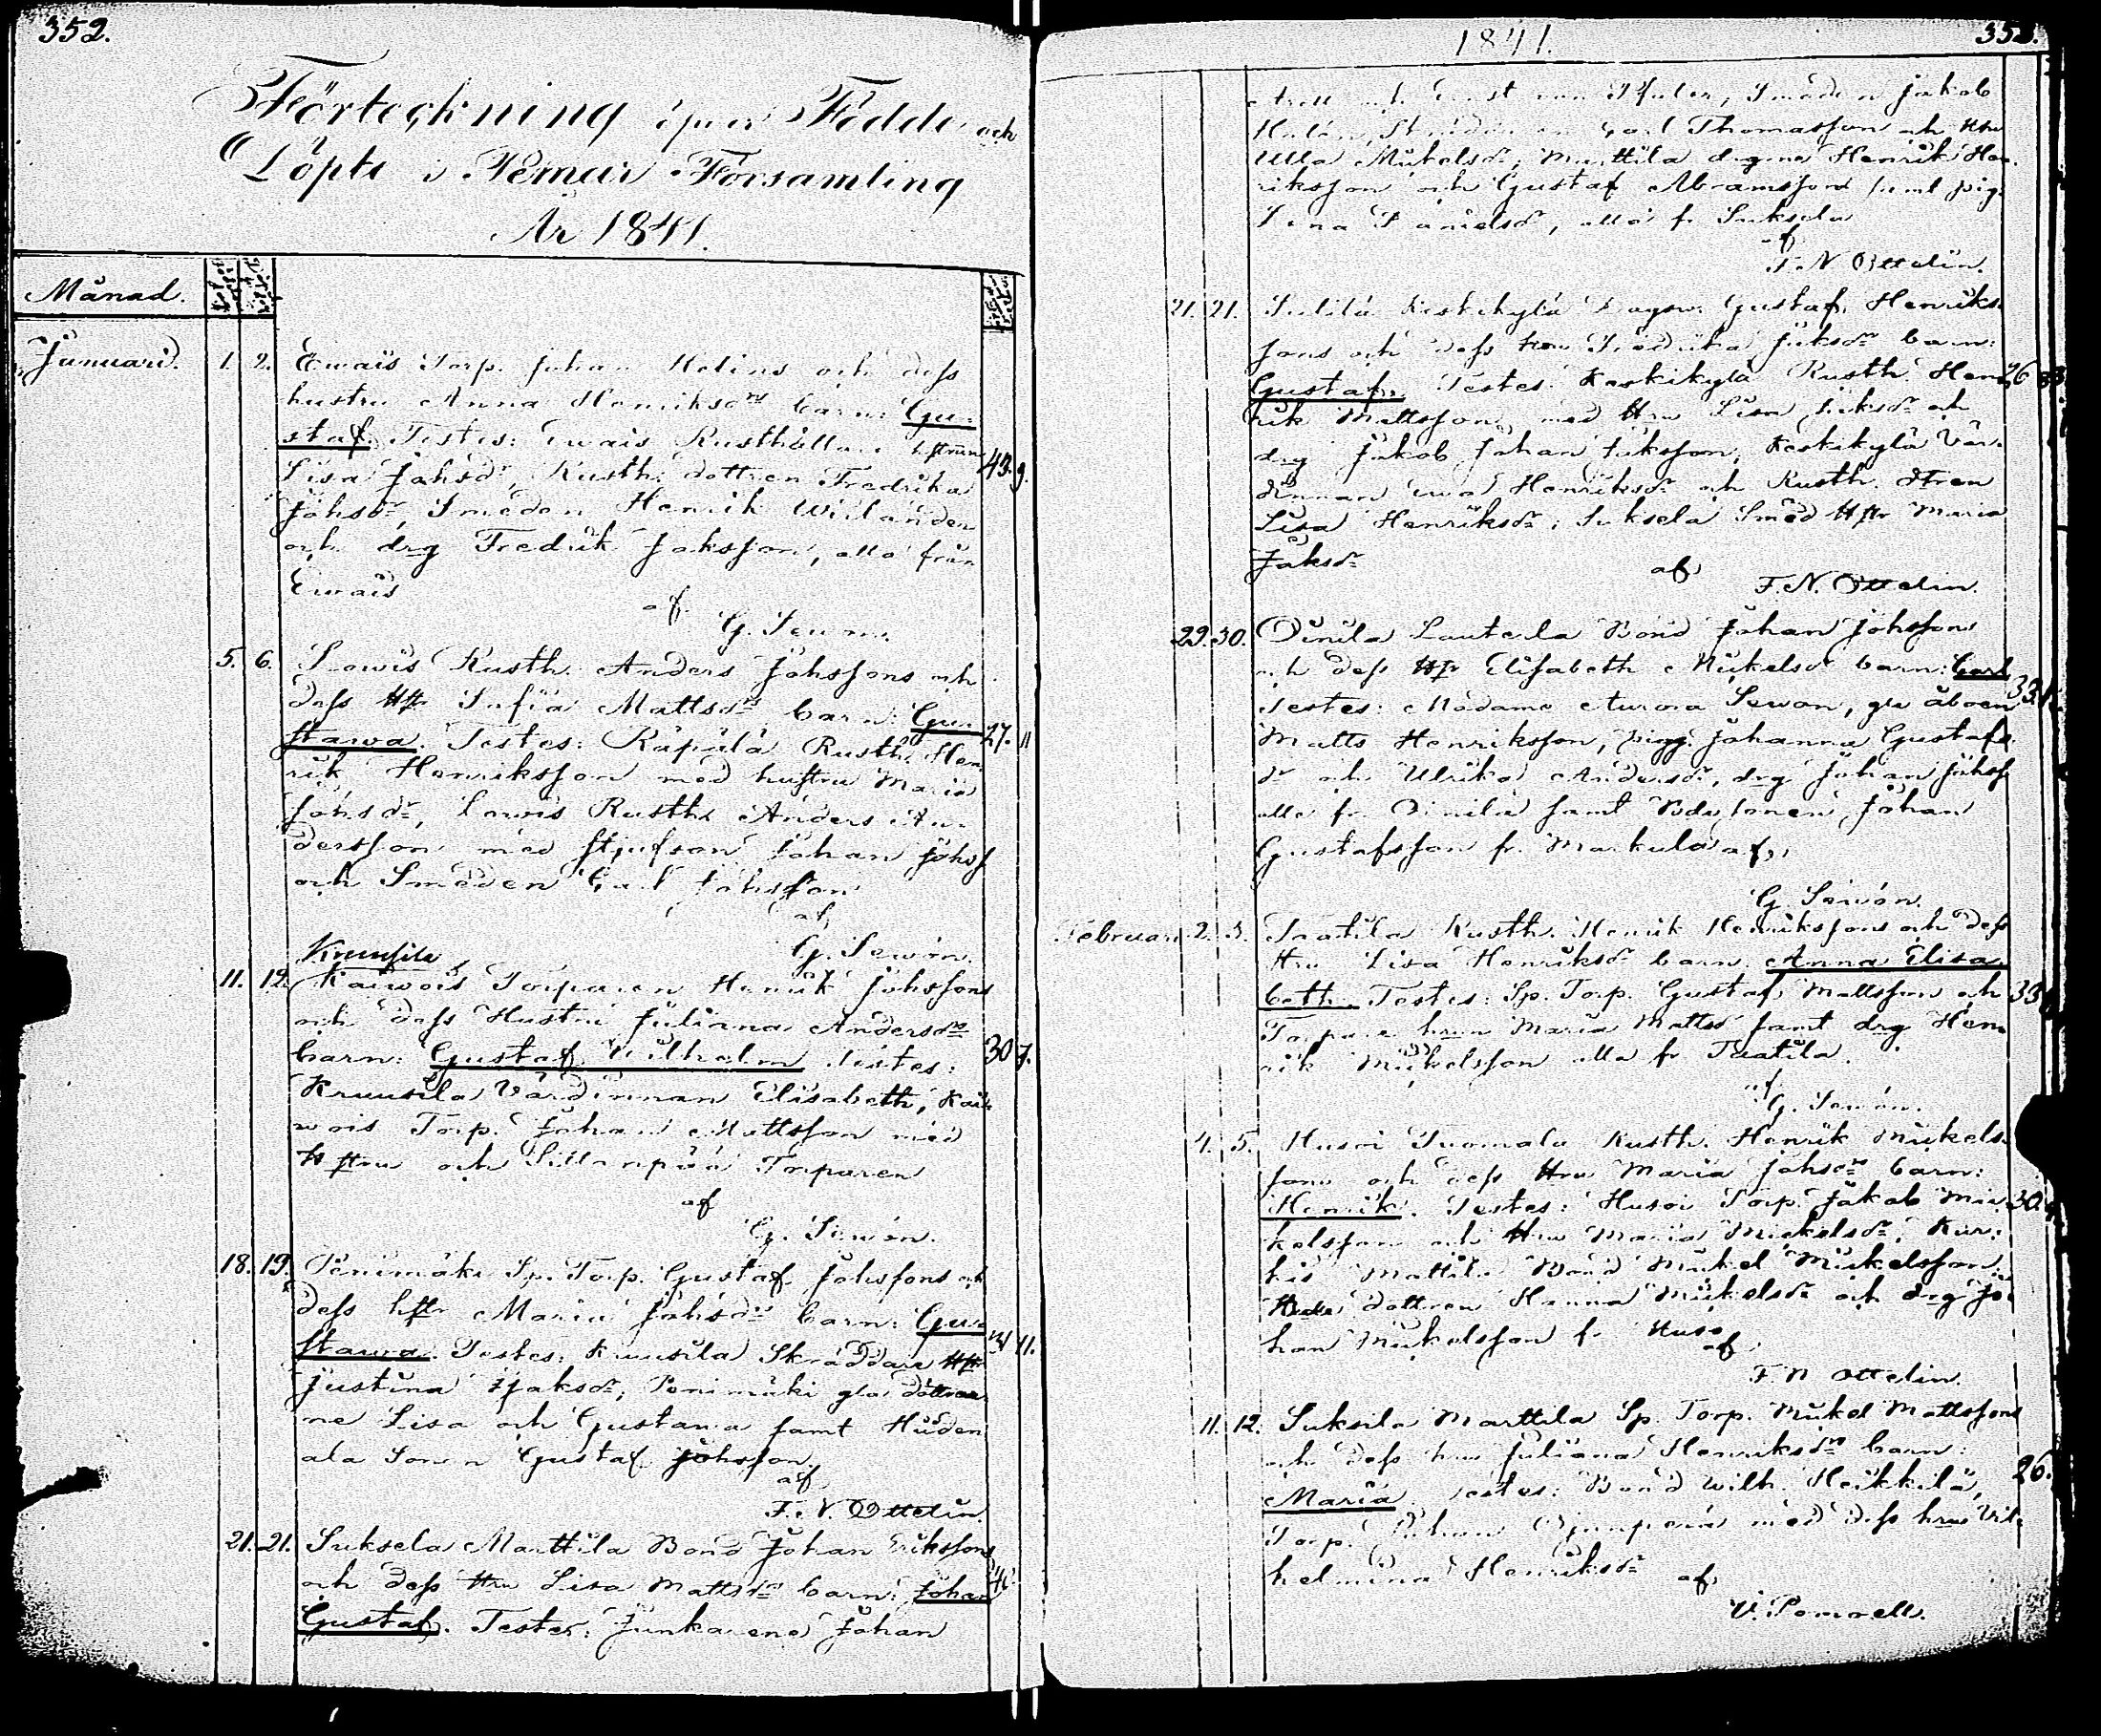 352.
Förteckning öfver Födde och
Döpte i Pemar Församling
År 1841.
Månad.
Januari. 1. 2. Ewais Torp. Johan Melins och dess
hustru Anna Henriksdrs barn: Gu-
staf. Testes: Ewais Rusthållare hstrun 43. 9.
Lisa Johsdr, Rusth. dottren Fredrika
Johsdr, Smeden Henrik Wilanden
och drg Fredrik Jaksson, alla från
Ewais
af
G. Sewón.
5. 6. Lowis Rusth. Anders Johssons och
dess Hstr Sofia Mattsdrs barn: Gu-
stawa. Testes: Räpälä Rusth. Hen 27. 11
rik Henriksson med hustru Maria
Johsdr, Lowis Rusth. Anders An-
dersson med stjufson Johan Johss
och Smeden Carl Johsson
af
Kruusila G. Sewón.
11. 12. Kaiwois Torparen Henrik Johssons
och dess Hustru Juliana Andersdrs
barn: Gustaf Wilhelm Testes: 30 7.
Kruusila Värdinnan Elisabeth, Kai
wois Torp. Johan Mattsson med
Hstru och Sillanpää Torparen
af
G. Sewón.
18. 19. Penimäki Sp. Torp. Gustaf Johssons och
dess hstr Maria Johsdrs barn: Gu-
stawa. Testes: Kruusila Skräddare Hstr 31 11.
Justina Jaksdr, Penimäki gla döttrar
ne Lisa och Gustava samt Huden
ala Sonen Gustaf Johsson.
af
F. N. Ottelin.
21. 21. Suksela Marttila Bond Johan Erikssons
och dess Hru Lisa Mattsdrs barn: Johan
Gustaf. Testes: Junkarene Johan
1841. 353.
och Ernst von Pfaler, Smeden Jakob
Carl Thomasson och Hru
Ulla Mickelsdr, Marttila drgne Henrik Hen
riksson och Gustaf Abramsson samt pig.
Lena Danielsdr, alla fr Suksela
af
F. N Ottelin.
21. 21. Keskikylä Dagsv. Gustaf Henriks-
sons och dess Hru Fredrika Jaksdrs barn:
Gustaf. Testes: Keskikylä Rusth. Hen 26
rik Mattsson med Hru Lisa Jaksdr och
drg Jakob Johan Jaksson, Keskikylä Vär-
dinnan Ewa Henriksdr och Rusth. dtren
Lisa Henriksdr, Suksela Smed Hstr Maria
Jaksdr
af
F. N. Ottelin.
29. 30. Oinila Lauteela Bond Johan Johssons
och dess Hstr Elisabeth Mickelsdr barn: Carl
Testes: Madame Aurora Sewon, gla åboen 33
Matts Henriksson, pigg. Johanna Gustafs
dr och Ulrika Andersdr, drg Johan Johss
alla fr Oinila samt Bdesonen Johan
Gustafsson fr. Markula af
G. Sewón.
Februari 2. 3. Taatila Rusth. Henrik Henrikssons och dess
Hru Lisa Henriksdr barn: Anna Elisa-
beth. Testes: Sp. Torp. Gustaf Mattsson och 33
Torpare hrun Maria Mattsd samt drg Hen
rik Mickelsson alla fr Taatila.
af
G. Sewón.
4. 5. Husoi Tuomala Rusth. Henrik Mickels-
sons och dess Hru Maria Johsdrs barn:
Henrik. Testes: Husoi Torp. Jakob Mic- 30.
kelsson och Hru Maria Mickelsdr, Kur-
kis Mattila Bond Mickel Mickelsson
Bde dottren Hanna Mickelsdr och drg Jo-
han Mickelsson fr Huso
af
F. N Ottelin.
11. 12. Suksela Marttila Sp. Torp. Mickel Mattssons
och dess hru Juliana Henriksdrs barn:
Maria. Testes: Bond Wilh. Heikkilä, 26.
Torp. Johan Ojanperä med dess hru Vil-
helmina Henriksdr
af
V. Pomrell.